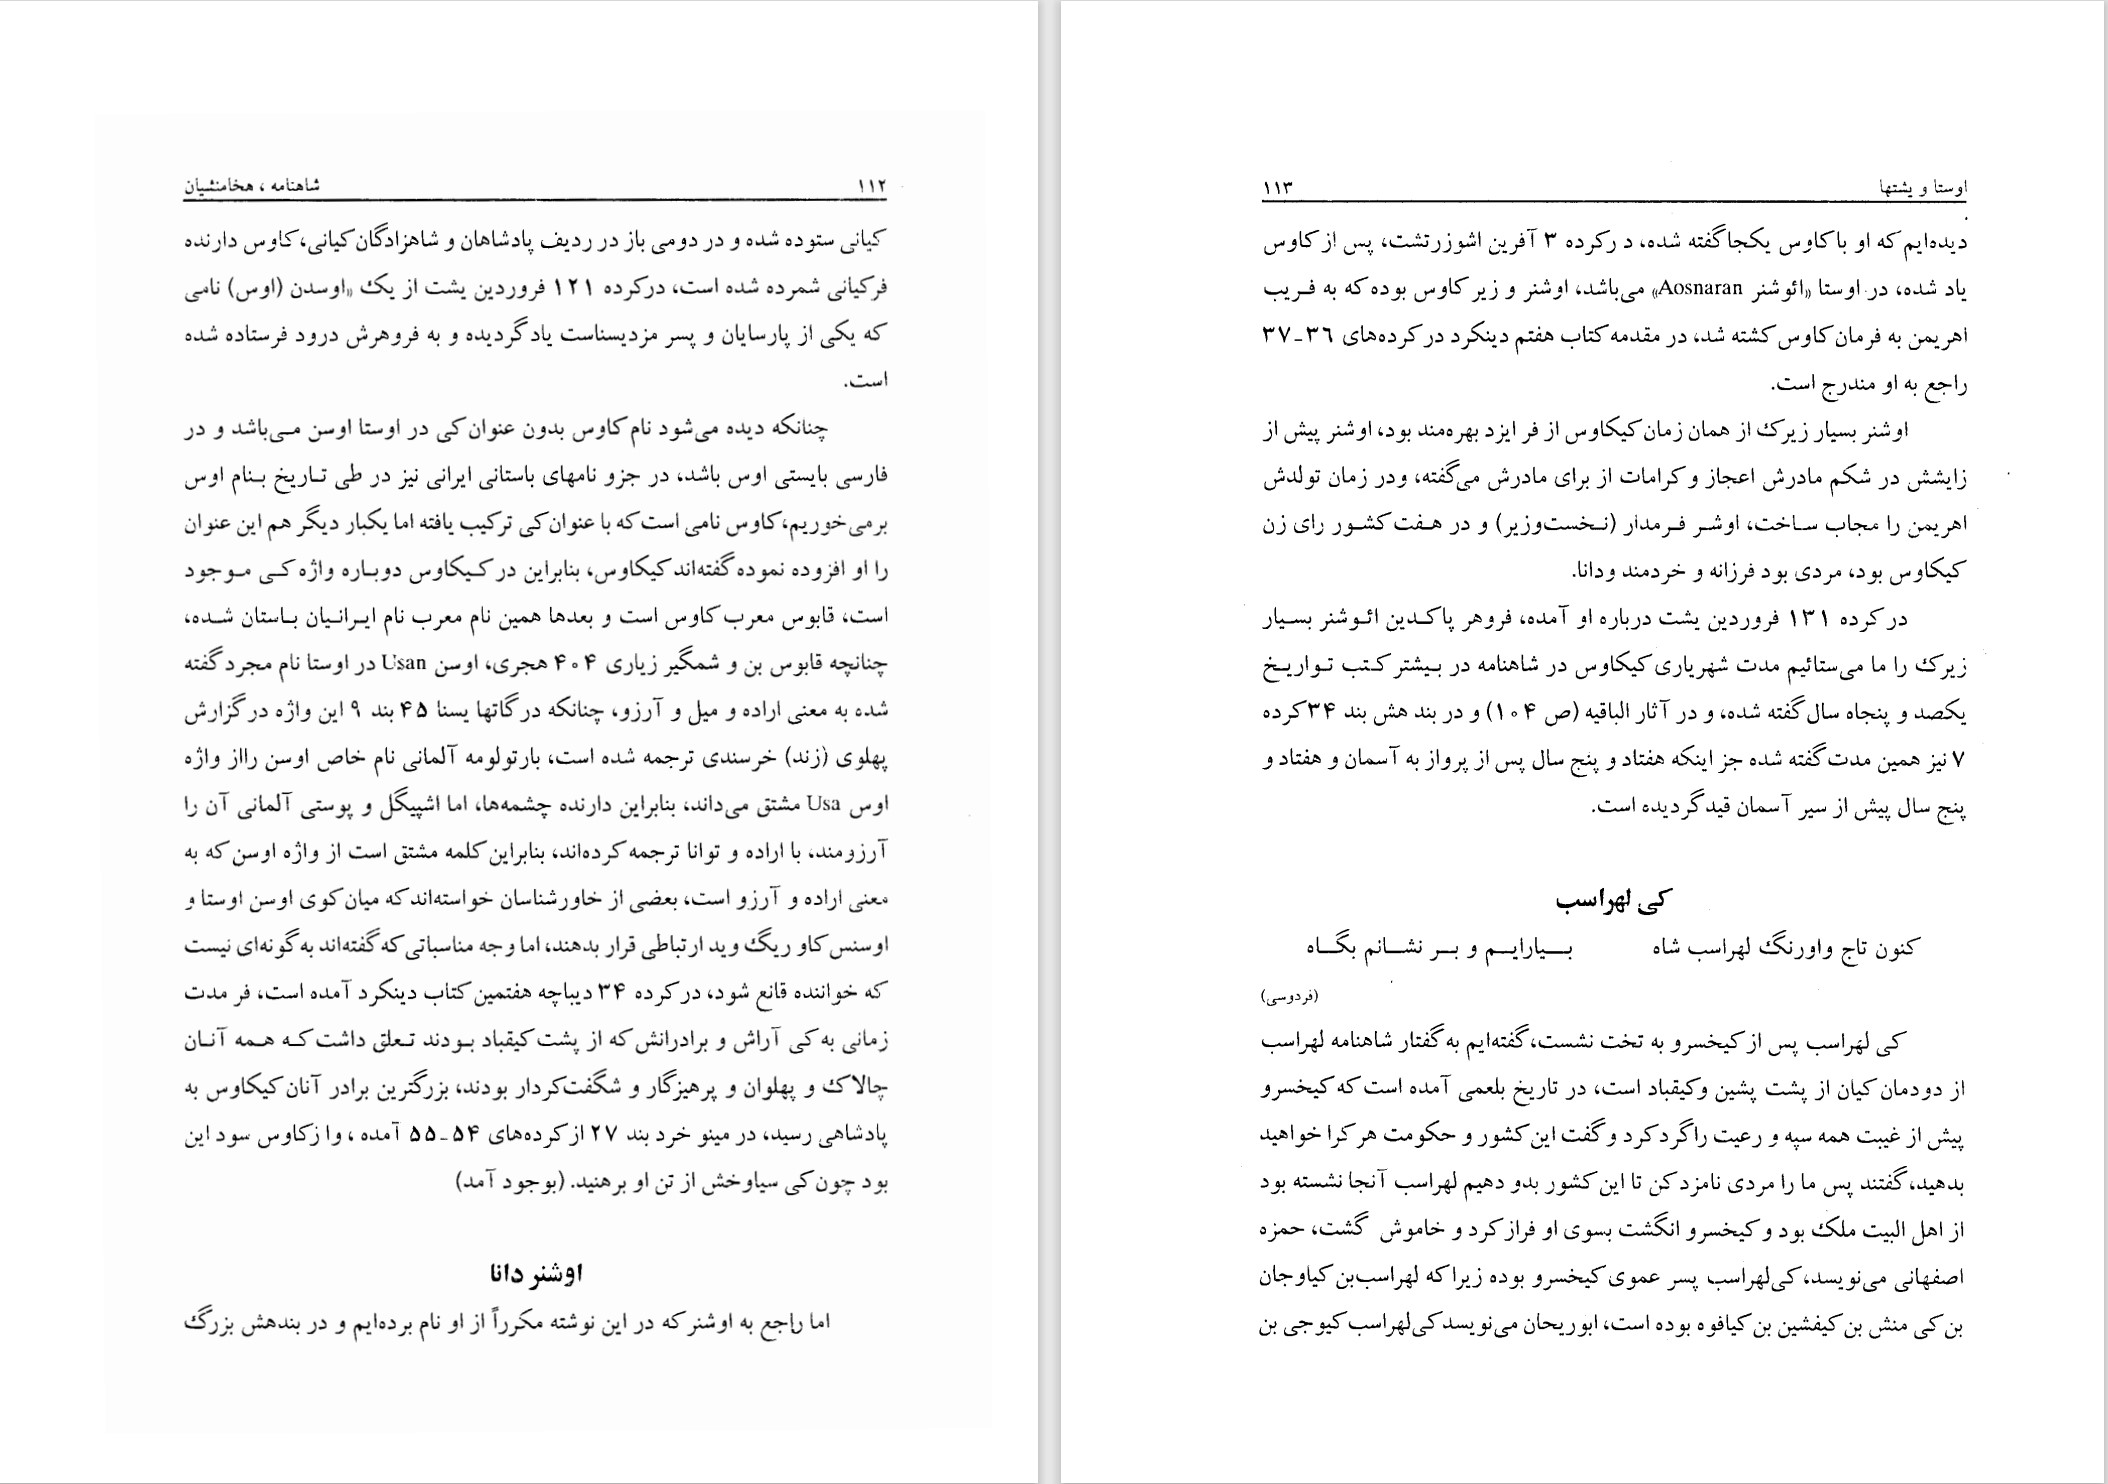 ۱۱۲ شاهنامه ، هخامنشیان
کیانی ستوده شده و در دومی باز در ردیف پادشاهان و شاهزادگان کیانی، کاوس دارنده
فرکیانی شمرده شده است، درکرده ۱۲۱ فروردین یشت از یک «اوسدن (اوس) نامی
که یکی از پارسایان و پسر مزدیسناست یاد گردیده و به فروهرش درود فرستاده شده
است.
چنانکه دیده می‌شود نام کاوس بدون عنوان کی در اوستا اوسن می‌باشد و در
فارسی بایستی اوس باشد، در جزو نامهای باستانی ایرانی نیز در طی تاریخ بنام اوس
برمی‌خوریم، کاوس نامی است که با عنوان کی ترکیب یافته اما یکبار دیگر هم این عنوان
را او افزوده نموده گفته‌اند کیکاوس، بنابراین در کیکاوس دوباره واژه کی موجود
است، قابوس معرب کاوس است و بعدها همین نام معرب نام ایرانیان باستان شده،
چنانچه قابوس بن و شمگیر زیاری ۴۰۴ هجری، اوسن Usan در اوستا نام مجرد گفته
شده به معنی اراده و میل و آرزو، چنانکه در گاتها یسنا ۴۵ بند ۹ این واژه در گزارش
پهلوی (زند) خرسندی ترجمه شده است، بارتولومه آلمانی نام خاص اوسن رااز واژه
اوس Usa مشتق می‌داند، بنابراین دارنده چشمه‌ها، اما اشپیگل و پوستی آلمانی آن را
آرزومند، با اراده و توانا ترجمه کرده‌اند، بنابراین کلمه مشتق است از واژه اوسن که به
معنی اراده و آرزو است، بعضی از خاورشناسان خواسته‌اند که میان کوی اوسن اوستا و
اوسنس کاو ریگ وید ارتباطی قرار بدهند، اما وجه مناسباتی که گفته‌اند به گونه‌ای نیست
که خواننده قانع شود، در کرده ۳۴ دیباچه هفتمین کتاب دینکرد آمده است، فر مدت
زمانی به کی آراش و برادرانش که از پشت کیقباد بودند تعلق داشت که همه آنان
چالاک و پهلوان و پرهیزگار و شگفت‌کردار بودند، بزرگترین برادر آنان کیکاوس به
پادشاهی رسید، در مینو خرد بند ۲۷ از کرده‌های ۵۴ـ۵۵ آمده ، وا زکاوس سود این
بود چون کی سیاوخش از تن او برهنید. (بوجود آمد)
اوشنر دانا
اما راجع به اوشنر که در این نوشته مکرراً از او نام برده‌ایم و در بندهش بزرگ
اوستا و یشتها ۱۱۳
دیده‌ایم که او با کاوس یکجا گفته شده، د رکرده ۳ آفرین اشوزرتشت، پس از کاوس
یاد شده، در اوستا «ائوشنر Aosnaran» می‌باشد، اوشنر و زیر کاوس بوده که به فریب
اهریمن به فرمان کاوس کشته شد، در مقدمه کتاب هفتم دینکرد در کرده‌های ۳۶ـ۳۷
راجع به او مندرج است.
اوشنر بسیار زیرک از همان زمان کیکاوس از فر ایزد بهره‌مند بود، اوشنر پیش از
زایشش در شکم مادرش اعجاز و کرامات از برای مادرش می‌گفته، ودر زمان تولدش
اهریمن را مجاب ساخت، اوشر فرمدار (نخست‌وزیر) و در هفت کشور رای زن
کیکاوس بود، مردی بود فرزانه و خردمند ودانا.
در کرده ۱۳۱ فروردین یشت درباره او آمده، فروهر پاکدین ائوشنر بسیار
زیرک را ما می‌ستائیم مدت شهریاری کیکاوس در شاهنامه در بیشتر کتب تواریخ
یکصد و پنجاه سال گفته شده، و در آثار الباقیه (ص ۱۰۴) و در بند هش بند ۳۴ کرده
۷ نیز همین مدت گفته شده جز اینکه هفتاد و پنج سال پس از پرواز به آسمان و هفتاد و
پنج سال پیش از سیر آسمان قید گردیده است.
کی لهراسب
کنون تاج واورنگ لهراسب شاه بیارایم و بر نشانم بگاه
(فردوسی)
کی لهراسب پس از کیخسرو به تخت نشست، گفته‌ایم به گفتار شاهنامه لهراسب
از دودمان کیان از پشت پشین وکیقباد است، در تاریخ بلعمی آمده است که کیخسرو
پیش از غیبت همه سپه و رعیت راگرد کرد و گفت این کشور و حکومت هر کرا خواهید
بدهید، گفتند پس ما را مردی نامزد کن تا این کشور بدو دهیم لهراسب آنجا نشسته بود
از اهل البیت ملک بود و کیخسرو انگشت بسوی او فراز کرد و خاموش گشت، حمزه
اصفهانی می‌نویسد، کی‌لهراسب پسر عموی کیخسرو بوده زیرا که لهراسب‌بن کیاوجان
بن کی منش بن کیفشین بن کیافوه بوده است، ابوریحان می‌نویسد کی‌لهراسب کیوجی بن